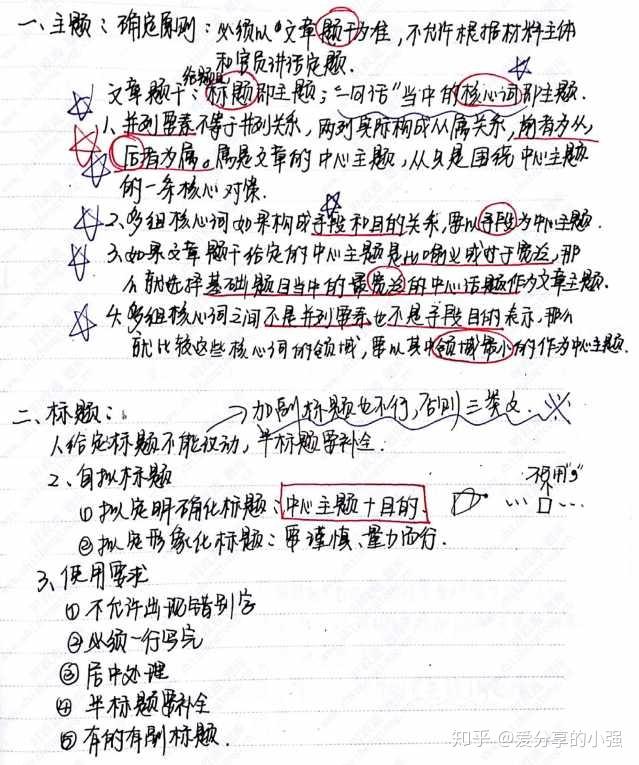 一、主题：确定原则：必须以文章题干为准，不允许根据材料主体
和官员讲话定题.
给题目
文章题干：标题即主题；"一句话"当中的核心词即主题.
1、并列要素不等于并列关系，两列实际构成从属关系，前者为从，
后者为属。属是文章的中心主题，从只是围绕中心主题
的一条核心对策.
2、多组核心词如果构成手段和目的关系，要以手段为中心主题.
3、如果文章题干给定的中心主题是比喻义或过于宽泛，那
么就选择基础题目当中的最宽泛的中心话题作为文章主题.
4、多组核心词之间不是并列要素也不是手段目的表示，那么
就比较这些核心词的领域，要以其中领域最小的作为中心主题.
二、标题：
→加副标题也不行，否则三类文.
1、给定标题不能改动，半标题要补全.
2、自拟标题
不用"的"
①拟定明确化标题：中心主题+目的.
②拟定形象化标题：要谨慎、量力而行.
3、使用要求
①不允许出现错别字
②必须一行写完
③居中处理
④半标题要补全
⑤有的有副标题.
知乎 @爱分享的小强